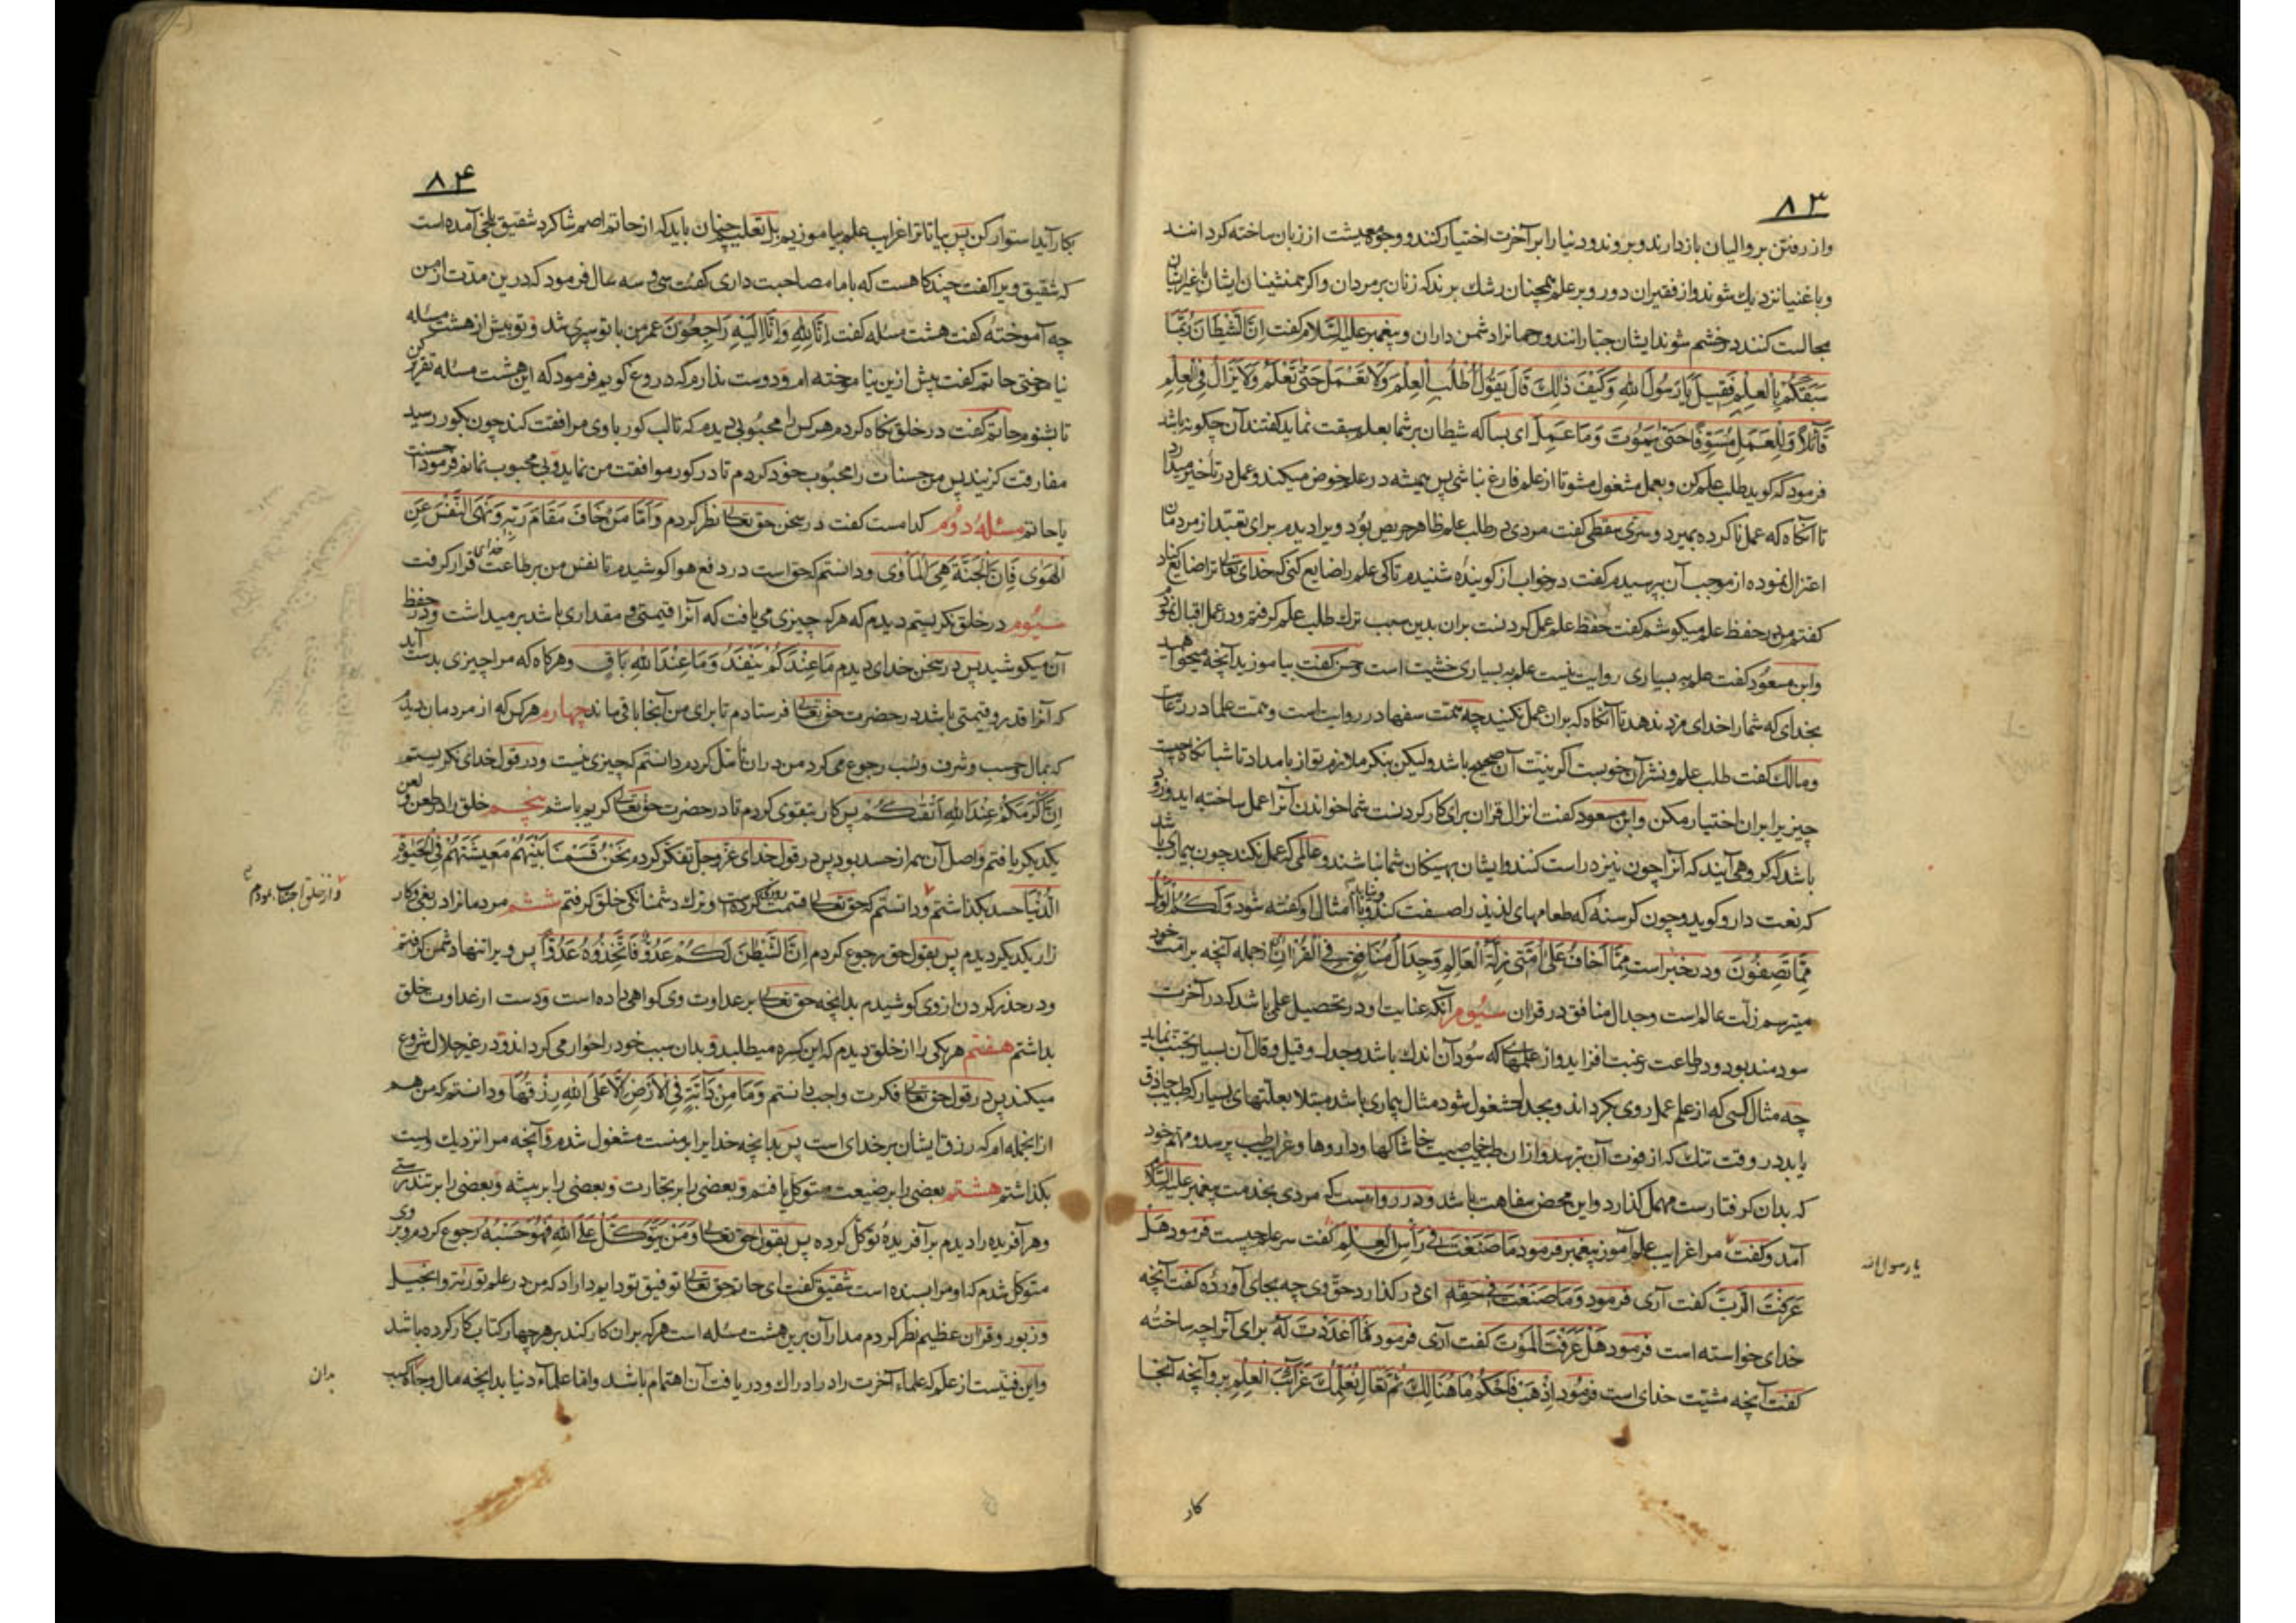 ٨٣
واز رفتن بر والیان باز دارند و بروند و دنیا را بر آخرت اختیار کنند و وجوه معیشت از زبان ساخته کردانند
وبا غنیا نزدیك شوند و از فقیران دور و بر علم همچنان رشك برند که زنان بر مردان و اکر همنشینان ایشان با غیر ایشان
مجالست کنند در خشم شوند ایشان جبارانند و رحمانرا دشمن داران و پیغمبر علیه السّلام کفت اِنَّ الشَّیْطَانَ رُبَّمَا
سَبَقَکُمْ بِالْعِلْمِ فَقِیلَ یَا رَسُولَ اللهِ وَکَیْفَ ذٰلِكَ قَالَ یَقُولُ اُطْلُبِ الْعِلْمَ وَلَا تَعْمَلْ حَتّٰی تَعْلَمَ وَلَا یَزَالُ فِی الْعِلْمِ
قَائِلًا وَلِلْعَمَلِ مُسَوِّفًا حَتّٰی یَمُوتَ وَمَا عَمِلَ ای بسا که شیطان بر شما بعلم سبقت نماید کفتند آن چکونه باشد
فرمود که کوید طلب علم کن و بعمل مشغول مشو تا از علم فارغ نباشی پس همیشه در علم خوض میکند و عمل در تأخیر میدارد
تا آنکاه که عمل ناکرده بمیرد و سری سقطی کفت مردی در طلب علم ظاهر حریص بود ویرا دیدم برای تعبد از مردمان
اعتزال نموده از موجب آن پرسیدم کفت در خواب از کوینده شنیدم تا کی علم را ضایع کنی که خدای تعالی ترا ضایع کناد
کفتم من در حفظ علم میکوشم کفت حفظ علم عمل کردنست بران بدین سبب ترك طلب علم کرفتم و در عمل اقبال نمود
وابن مسعود کفت علم به بسیاری روایت نیست علم به بسیاری خشیت است و حسن کفت بیاموزید آنچه میخواهید
بخدای که شمارا خدای مزد ندهد تا آنکاه که بران عمل نکنید چه همّت سفها در روایت است و همّت علما در رعایت
ومالك کفت طلب علم و نشر آن خوبست اکر نیت آن صحیح باشد ولیکن بنکر ملازم تو از بامداد تا شبانکاه چیست
چیزیرا بران اختیار مکن و ابن مسعود کفت انزال قران برای کار کردنست شما خواندن آنرا عمل ساخته اید و زود
باشد که کروهی آیند که آنرا چون نیزه راست کنند و ایشان بهینکان شما نباشند و عالمی که عمل نکند چون بیماری باشد
که نعت دارو کوید و چون کرسنهٔ که طعامهای لذیذ را صفت کند و نیابد و امثال او کفته شود وَلَکُمُ الْوَیْلُ
مِمَّا تَصِفُونَ ودر خبر است مِمَّا اَخَافُ عَلٰی اُمَّتِی زِلَّةُ الْعَالِمِ وَجِدَالُ مُنَافِقٍ فِی الْقُرْاٰنِ از جمله آنچه بر امت خود
میترسم زلت عالم است و جدال منافق در قران سیوم آنکه عنایت او در تحصیل علمی باشد که در آخرت
سودمند بود و در طاعت رغبت افزاید و از علمهایی که سود آن اندك باشد و جدل و قیل و قال آن بسیار تجنب نماید
چه مثال کسی که از علم عمل روی بکرداند و بجدل مشغول شود مثال بیماری باشد مبتلا بعلّتهای بسیار که طبیب حاذق
یابد در وقت تنك که از فوت آن بترسد و از ان طبیب خاصیت خاشاکها و داروها و غرایب طب پرسد و مهم خود
که بدان کرفتارست مهمل کذارد و این محض سفاهت باشد و در روایتست که مردی بخدمت پیغمبر علیه السّلام
آمد و کفت مرا غرایب علم آموز پیغمبر فرمود مَا صَنَعْتَ فِی رَأْسِ الْعِلْمِ کفت سر علم چیست فرمود هَلْ
یا رسول الله
عَرَفْتَ الرَّبَّ کفت آری فرمود وَمَا صَنَعْتَ فِی حَقِّهِ ای در کذارد حق وی چه بجای آوردهٔ کفت آنچه
خدای خواسته است فرمود هَلْ عَرَفْتَ الْمَوْتَ کفت آری فرمود فَمَا اَعْدَدْتَ لَهُ برای آنرا چه ساختهٔ
کفت آنچه مشیّت خدای است فرمود اِذْهَبْ فَاَحْکِمْ مَا هُنَالِكَ ثُمَّ تَعَالَ نُعَلِّمُكَ غَرَائِبَ الْعِلْمِ برو آنچه آنجا
کار
٨۴
بکار آید استوار کن پس بیا تا ترا غرایب علم بیاموزیم بل تعلیم چنان باید که از حاتم اصم شاکرد شقیق بلخی آمده است
که شقیق ویرا کفت چند کاهست که باما مصاحبت داری کفت سی و سه سال فرمود که درین مدّت از من
چه آموختهٔ کفت هشت مسئله کفت اِنَّا لِلّٰهِ وَاِنَّا اِلَیْهِ رَاجِعُونَ عمر من با تو سپری شد و تو بیش از هشت مسئله
نیاموختی حاتم کفت بیش ازین نیاموخته ام و دوست ندارم که دروغ کویم فرمود که این هشت مسئله تقریر کن
تا بشنوم حاتم کفت در خلق نکاه کردم هرکس را محبوبی دیدم که تا لب کور با وی مرافقت کند چون بکور رسید
مفارقت کزیند پس من حسنات را محبوب خود کردم تا در کور موافقت من نماید و بی محبوب نمانم فرمود احسنت
یا حاتم مسئله دوم کدامست کفت در سخن حق تعالی نظر کردم وَاَمَّا مَنْ خَافَ مَقَامَ رَبِّهِ وَنَهَی النَّفْسَ عَنِ
الْهَوٰی فَاِنَّ الْجَنَّةَ هِیَ الْمَأْوٰی ودانستم که حق است در دفع هوا کوشیدم تا نفس من بر طاعت خدای قرار کرفت
سیوم در خلق نکریستم دیدم که هر که چیزی می یافت که آنرا قیمتی و مقداری باشد بر میداشت و در حفظ
آن میکوشید پس در سخن خدای دیدم مَا عِنْدَکُمْ یَنْفَدُ وَمَا عِنْدَ اللهِ بَاقٍ وهرکاه که مرا چیزی بدست آید
که آنرا قدر و قیمتی باشد در حضرت حق تعالی فرستادم تا برای من آنجا باقی ماند چهارم هر کس که از مردمان دیدم
که بمال و حسب و شرف و نسب رجوع می کرد من دران تأمّل کردم دانستم که چیزی نیست و در قول خدای نکریستم
اِنَّ اَکْرَمَکُمْ عِنْدَ اللهِ اَتْقٰکُمْ پس کار بتقوی کردم تا در حضرت حق تعالی کریم باشم پنجم خلق را در طعن و لعن
یکدیکر یافتم واصل آن همه از حسد بود پس در قول خدای عزّ وجل تفکر کردم نَحْنُ قَسَمْنَا بَیْنَهُمْ مَعِیشَتَهُمْ فِی الْحَیٰوةِ
الدُّنْیَا حسد بکذاشتم و دانستم که حق تعالی قسمت کرده است و ترك دشمنانکی خلق کرفتم ششم مردمانرا در بغی و کار
واز خلق اجتناب نمودم
زار یکدیکر دیدم پس بقول حق رجوع کردم اِنَّ الشَّیْطٰنَ لَکُمْ عَدُوٌّ فَاتَّخِذُوهُ عَدُوًّا پس ویرا تنها دشمن کرفتم
ودر حذر کردن از وی کوشیدم بدانچه حق تعالی بر عداوت وی کواهی داده است و دست از عداوت خلق
بداشتم هفتم هر یکی را از خلق دیدم که این کسره میطلبد و بدان سبب خود را خوار می کرداند و در غیر حلال شروع
میکند پس در قول حق تعالی فکرت واجب دانستم وَمَا مِنْ دَابَّةٍ فِی الْاَرْضِ اِلَّا عَلَی اللهِ رِزْقُهَا ودانستم که من هم
از انجمله ام که رزق ایشان بر خدای است پس بدانچه خدایرا بر منست مشغول شدم و آنچه مرا نزدیك وی است
بکذاشتم هشتم بعضی را بر ضیعت متوکل یافتم و بعضی را بر تجارت و بعضی را بر پیشه و بعضی را بر تندرستی
وهر آفریده را دیدم بر آفریدهٔ توکل کرده پس بقول حق تعالی وَمَنْ یَتَوَکَّلْ عَلَی اللهِ فَهُوَ حَسْبُهُ رجوع کردم و بر وی
متوکل شدم که او مرا بسنده است شقیق کفت ای حاتم حق تعالی توفیق تو دایم داراد که من در علم توریة و انجیل
وزبور و قران عظیم نظر کردم مدار آن برین هشت مسئله است هر که بران کار کند بر هر چهار کتاب کار کرده باشد
واین فنیست از علم که علماء آخرت را در ادراك و دریافت آن اهتمام باشد و اما علماء دنیا بدانچه مال و جاه کسب
بدان